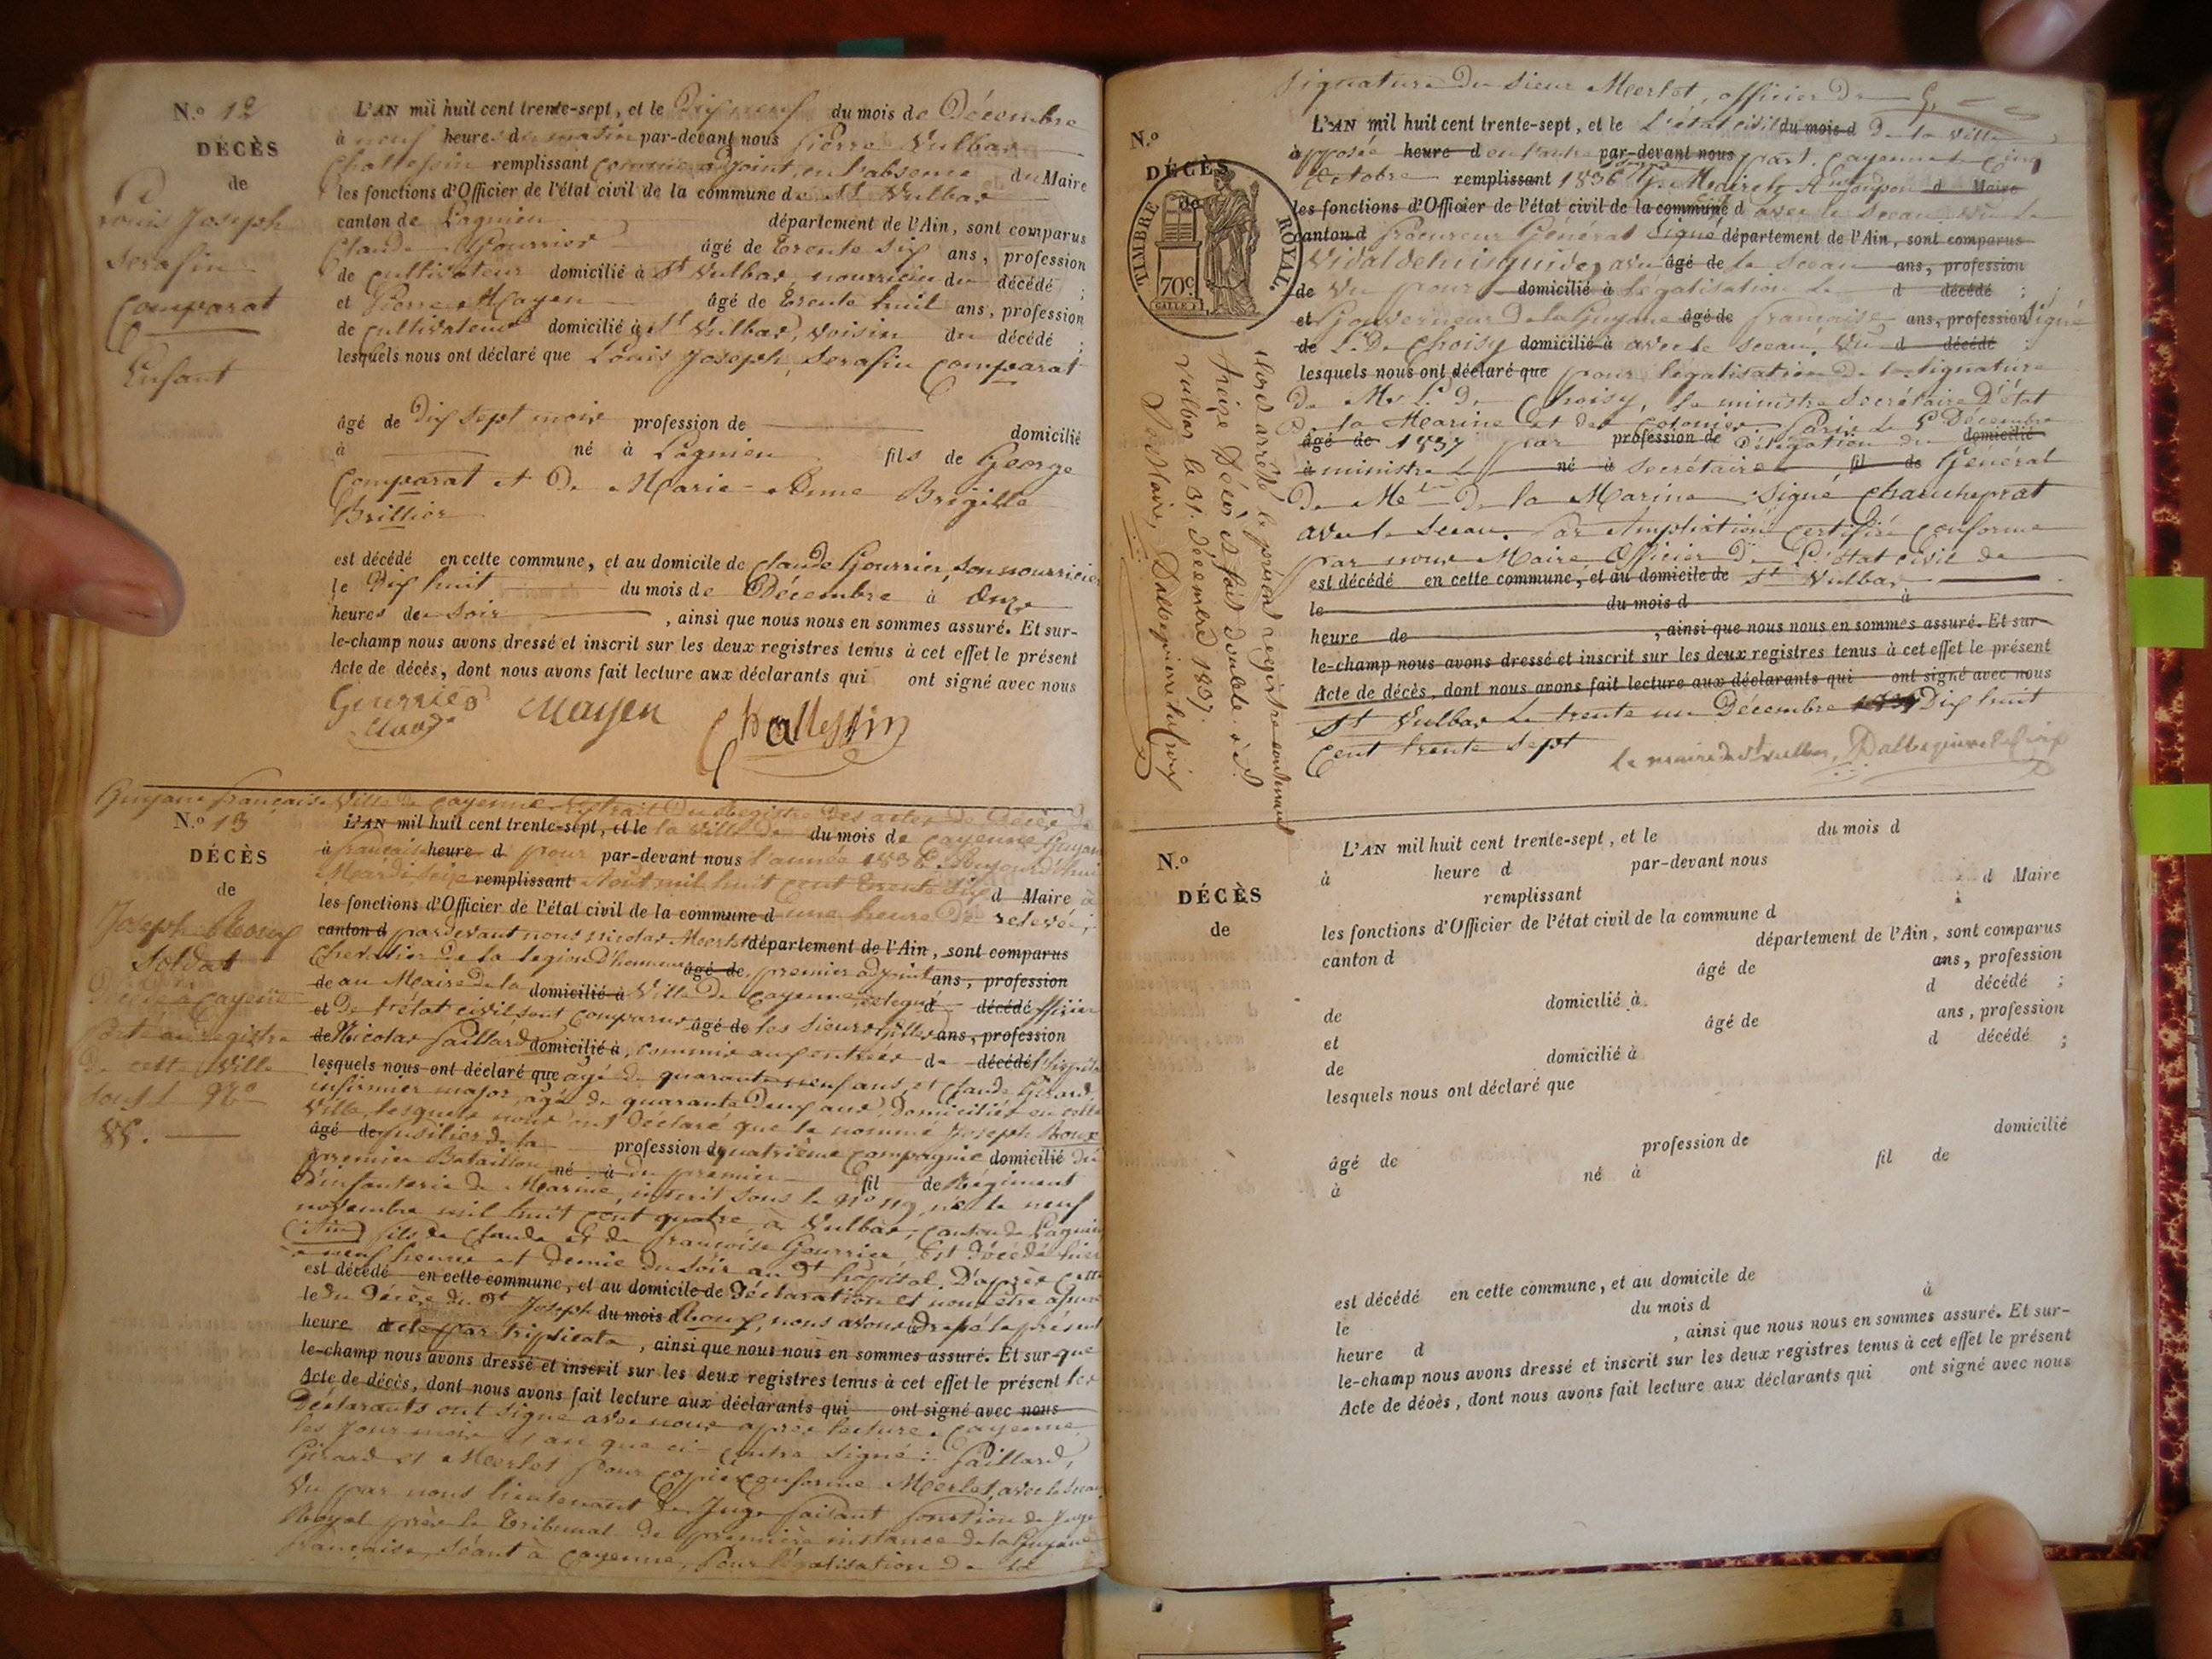 N.º 12
DÉCÈS
de
Louis Joseph
Serafin
Comparat
Enfant
L'AN mil huit cent trente-sept, et le Dix neuf du mois de Décembre
à neuf heures du matin par-devant nous Pierre Vulbas
Challesin remplissant comme adjoint, en l'absence du Maire
les fonctions d'Officier de l'état civil de la commune de St Vulbas
canton de Lagnieu département de l'Ain, sont comparus
Claude Gourrier âgé de trente six ans, profession
de cultivateur domicilié à St Vulbas, nourricier du décédé ;
et Pierre Mayen âgé de trente huit ans, profession
de cultivateur domicilié à St Vulbas, voisin du décédé ;
lesquels nous ont déclaré que Louis Joseph, Serafin Comparat
âgé de dix sept mois profession de domicilié
à né à Lagnieu fils de George
Comparat et de Marie-Anne Brigille
Brillier
est décédé en cette commune, et au domicile de Claude Gourrier, son nourricier
le Dix huit du mois de Décembre à onze
heures du soir , ainsi que nous nous en sommes assuré. Et sur-
le-champ nous avons dressé et inscrit sur les deux registres tenus à cet effet le présent
Acte de décès, dont nous avons fait lecture aux déclarants qui ont signé avec nous
Gourrier Mayen
Challesin
Guyane Française Ville de Cayenne Extrait du Registre des actes de Décès de
N.º 13
DÉCÈS
de
Joseph Roux
Soldat
Décédé à Cayenne
de cette Ville
L'AN mil huit cent trente-sept, et le la Ville de du mois de Cayenne Guyane
à française heure d pour par-devant nous l'année 1836 Aujourd'hui
Mardi seize remplissant Aout mil huit cent trente six d Maire à
les fonctions d'Officier de l'état civil de la commune d une heure de relevée,
canton d pardevant nous Nicolas Merlet département de l'Ain, sont comparus
Chevalier de la légion d'honneur âgé de premier adjoint ans, profession
de au Maire de la domicilié à Ville de Cayenne délégué d décédé officier
et de l'état civil, sont comparus âgé de les sieurs ans, profession
de Nicolas Paillard domicilié à, commis aux entrées de décédé l'hôpital
lesquels nous ont déclaré que âgé de quarante neuf ans, et Claude Girard,
infirmier major, âgé de quarante deux ans, domiciliés en cette
Ville, lesquels nous ont déclaré que le nommé Joseph Roux
âgé de fusilier de la profession de quatrième compagnie domicilié du
premier Bataillon né à du premier fil de Régiment
d'infanterie de Marine, inscrit sous le N.º 119, né le neuf
novembre mil huit cent quatre, à Vulbas, canton de Lagnieu
(Ain) fils de Claude et de Françoise Gourrier, est décédé hier
à neuf heures et demie du soir au dt hôpital. D'après cette
est décédé en cette commune, et au domicile de déclaration et nous être assuré
le du décès du dt Joseph du mois d Roux, nous avons dressé le présent
heure d acte par triplicata , ainsi que nous nous en sommes assuré. Et sur- que
le-champ nous avons dressé et inscrit sur les deux registres tenus à cet effet le présent les
Acte de décès, dont nous avons fait lecture aux déclarants qui ont signé avec nous
Déclarants ont signé avec nous après lecture à Cayenne
les jour mois et an que ci-contre signé : Paillard,
Girard et Merlet pour copie conforme Merlet, avec le sceau
Vu par nous lieutenant de Juge faisant fonction de Juge
Royal près le Tribunal de première instance de la Guyane
française, séant à Cayenne, Pour légalisation de la
signature du sieur Merlet, officier de
N.º
DÉCÈS
de
TIMBRE ROYAL.
70c
L'AN mil huit cent trente-sept, et le L'état civil du mois d de la ville
apposée heure d en l'autre par-devant nous part. Cayenne le cinq
Octobre remplissant 1836 d Maire
les fonctions d'Officier de l'état civil de la commune d avec le sceau vu le
canton d Procureur Général signé département de l'Ain, sont comparus
Vidal de Lingendes, avec âgé de le sceau ans, profession
de Vu pour domicilié à légalisation Le d décédé ;
et Gouverneur de la Guyane âgé de française ans, profession signé
de L. De Choisy domicilié à avec le sceau. Vu d décédé ;
lesquels nous ont déclaré que pour légalisation de la signature
de Mr L. De Choisy, le ministre Secrétaire d'état
de la Marine et des colonies. Paris le 5 Décembre
âgé de 1837 par profession de délégation du domicilié
à ministre Le né à secrétaire fil de Général
du Mtre de la Marine signé Chaucheprat
avec le sceau. Par Ampliation certifié conforme
par nous Maire Officier de L'état civil de
est décédé en cette commune, et au domicile de St Vulbas
le du mois d à
heure de , ainsi que nous nous en sommes assuré. Et sur-
le-champ nous avons dressé et inscrit sur les deux registres tenus à cet effet le présent
Acte de décès, dont nous avons fait lecture aux déclarants qui ont signé avec nous
St Vulbas le trente un Décembre Dix huit
Cent trente sept Le maire de St Vulbas,
Clos et arrêté le présent registre contenant
treize Décès et fait double à St
Vulbas le 31 décembre 1837.
N.º
DÉCÈS
de
L'AN mil huit cent trente-sept, et le du mois d
à heure d par-devant nous
remplissant d Maire
les fonctions d'Officier de l'état civil de la commune d
canton d département de l'Ain, sont comparus
âgé de ans, profession
de domicilié à d décédé ;
et âgé de ans, profession
de domicilié à d décédé ;
lesquels nous ont déclaré que
âgé de profession de domicilié
à né à fil de
est décédé en cette commune, et au domicile de
le du mois d à
heure d , ainsi que nous nous en sommes assuré. Et sur-
le-champ nous avons dressé et inscrit sur les deux registres tenus à cet effet le présent
Acte de décès, dont nous avons fait lecture aux déclarants qui ont signé avec nous